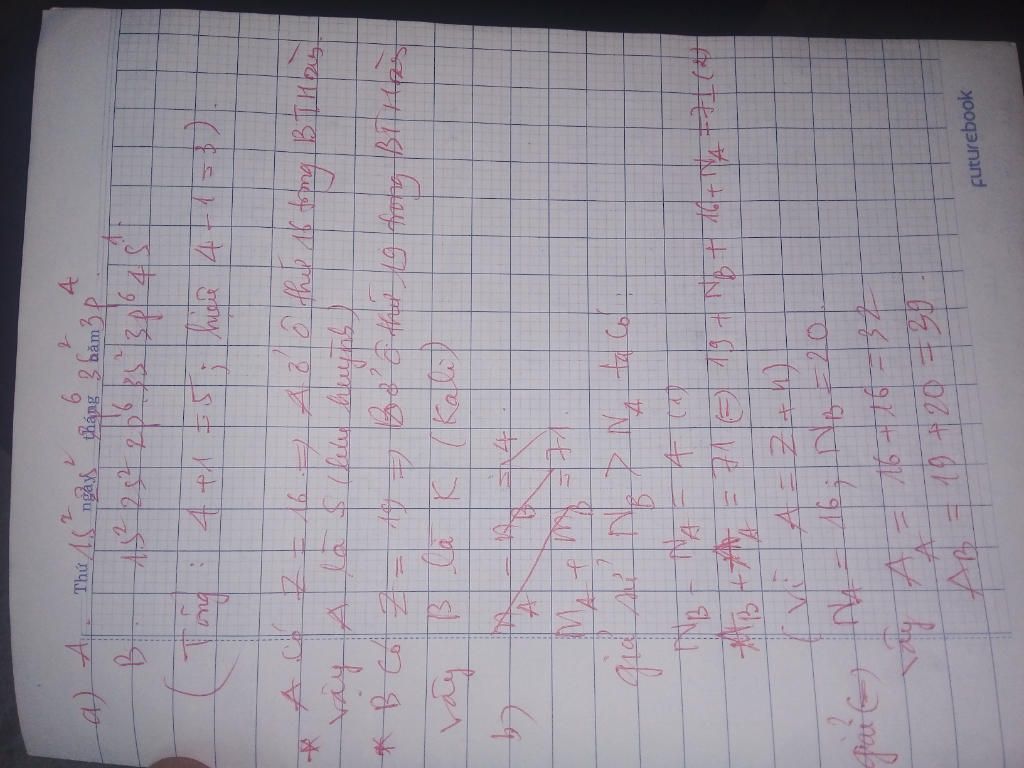 Thứ ngày tháng năm
a) A. 1s² 2s² 2p⁶ 3s² 3p⁴
B. 1s² 2s² 2p⁶ 3s² 3p⁶ 4s¹.
(Tổng: 4 + 1 = 5; hiệu 4 - 1 = 3)
* A có Z = 16 => A ở ô thứ 16 trong BTHoàn
Vậy A là S (lưu huỳnh)
* B có Z = 19 => B ở ô thứ 19 trong BTHoàn
Vậy B là K (Kali)
b)
giả sử N_B > N_A ta có:
N_B - N_A = 4 (1)
A_B + A_A = 71 (=) 19 + N_B + 16 + N_A = 71 (2)
(vì A = Z + N)
giải (=) N_A = 16; N_B = 20.
Vậy A_A = 16 + 16 = 32
A_B = 19 + 20 = 39.
futurebook